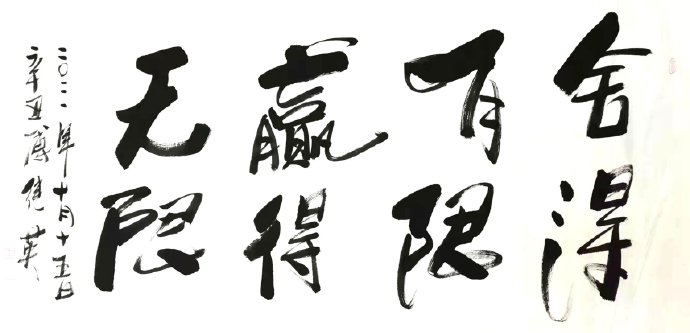 舍得
有限
赢得
无限
二〇二一年十月十五日
辛丑